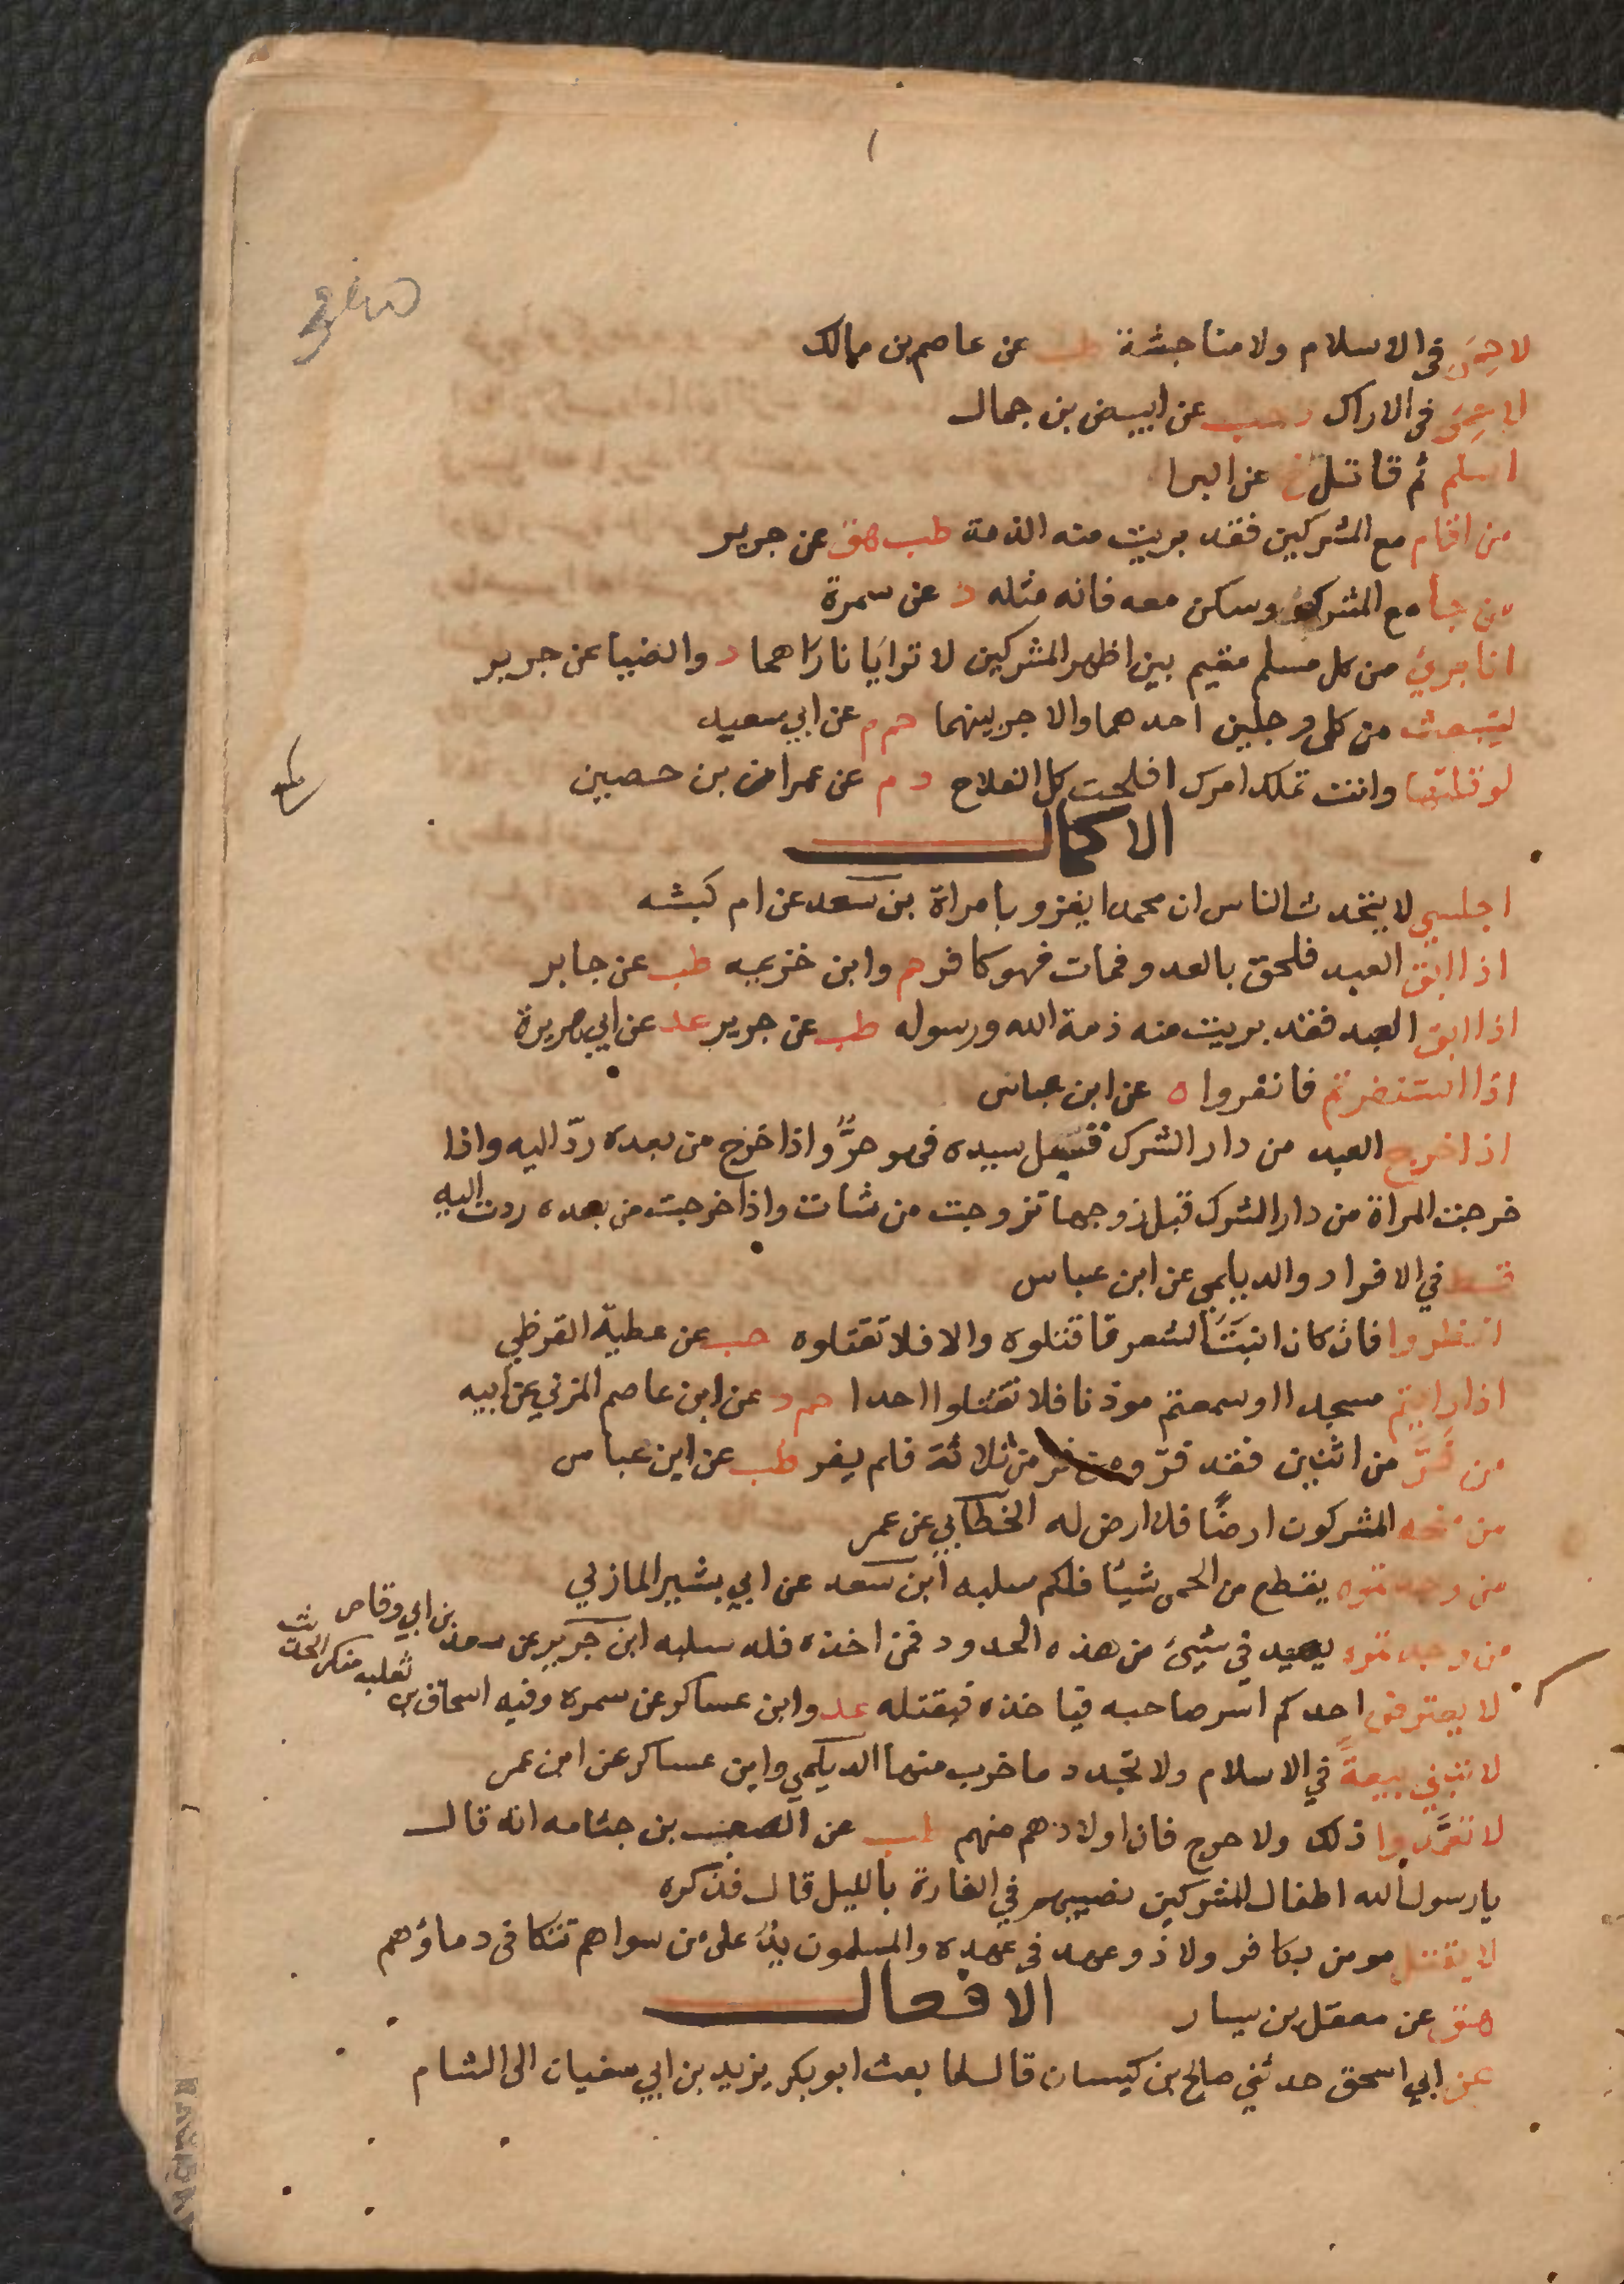 لا حِمَى في الاسلام ولا مناجشة طب عن عاصم بن مالك
لا حِمَى في الاراك د حب عن ابيض بن جمال
اسلم ثم قاتل خ عن البرا
من اقام مع المشركين فقد بريت منه الذمة طب هق عن جرير
من جامع المشرك وسكن معه فانه مثله د عن سمرة
انا برئ من كل مسلم مقيم بين اظهر المشركين لا ترايَا ناراهما د والضيا عن جرير
ليتبعث من كل رجلين احدهما والاجر بينهما حم م عن ابي سعيد
لو قلتها وانت تملك امرك افلحت كل الفلاح د م عن عمران بن حصين
الاكمال
اجلسي لا يتحدث الناس ان محمدا يغزو بامراة بن سعد عن ام كبشه
اذا ابق العبد فلحق بالعدو فمات فهو كافر حم وابن خزيمه طب عن جابر
اذا ابق العبد فقد بريت منه ذمة الله ورسوله طب عن جرير عد عن ابي هريرة
اذا استنفرتم فانفروا ه عن ابن عباس
اذا خرج العبد من دار الشرك قبل سيده فهو حرٌّ واذا خرج من بعده ردّ اليه واذا
خرجت المراة من دار الشرك قبل زوجها تزوجت من شات واذا خرجت من بعده ردت اليه
قط في الافراد والديلمي عن ابن عباس
انظروا فان كان انبَتَ الشعر فاقتلوه والا فلا تقتلوه حب عن عطيّة القرظي
اذا رايتم مسجدا او سمعتم موذنا فلا تقتلوا احدا حم د عن ابن عاصم المزني عن ابيه
من فَرَّ من اثنين فقد فرّ ومن فر من ثلاثة فلم يفر طب عن ابن عباس
من منحه المشركون ارضًا فلا ارض له الخطابي عن عمر
من وجدتموه يقطع من الحمى شيئا فلكم سلبه ابن سعد عن ابي بشير المازني
من وجدتموه يصيد في شيئ من هذه الحدود فمن اخذه فله سلبه ابن جرير عن سعد بن ابي وقاص
لا يعترض احدكم اسر صاحبه فياخذه فيقتله عد وابن عساكر عن سمره وفيه اسحاق بن ثعلبه منكر الحديث
لا تبنى بيعةً في الاسلام ولا تجدد ما خرب منها الديلمي وابن عساكر عن ابن عمر
لا تعمَّدوا ذلك ولا حرج فان اولادهم منهم طب عن الصعب بن جثامه انه قال
يا رسول الله اطفال المشركين نصيبهم في الغارة بالليل قال فذكره
لا يقتل مومن بكافر ولا ذو عهد في عهده والمسلمون يدٌ على من سواهم تتكافى دماؤهم
هق عن معقل بن يسار
الافعال
عن ابي اسحق حدثني صالح بن كيسان قال لما بعث ابو بكر يزيد بن ابي سفيان الى الشام